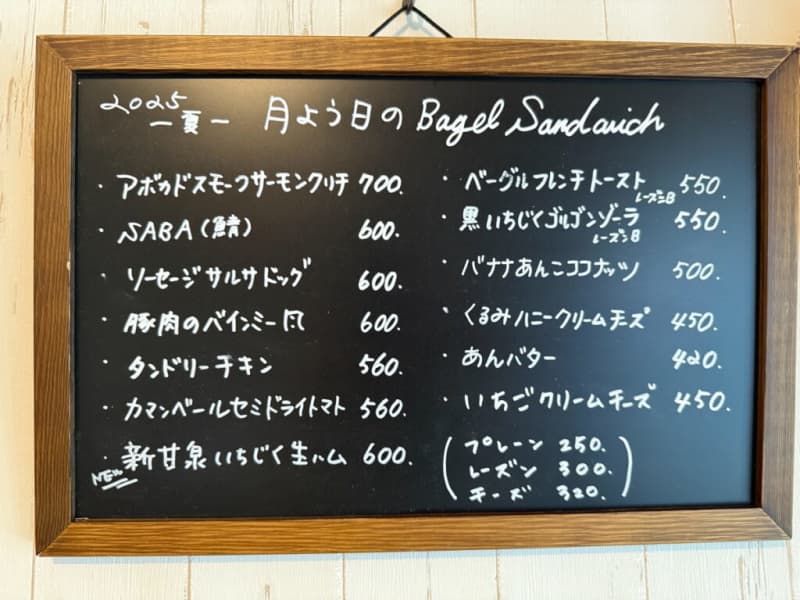 2025
ー夏ー 月よう日の Bagel Sandwich
・アボカドスモークサーモンクリチ 700.
・SABA（鯖） 600.
ソーセージサルサドッグ 600.
・豚肉のバインミー風 600.
・タンドリーチキン 560.
・カマンベールセミドライトマト 560.
・新甘泉いちじく生ハム 600.
NEW
・ベーグルフレンチトースト 550.
レーズンB
・黒いちじくゴルゴンゾーラ 550.
レーズンB
・バナナあんこココナッツ 500.
・くるみハニークリームチーズ 450.
・あんバター 420.
・いちごクリームチーズ 450.
（プレーン 250.
レーズン 300.
チーズ 320.）